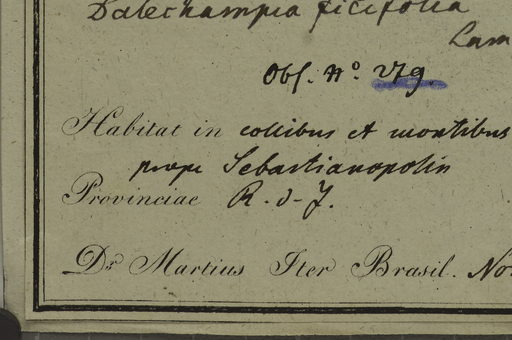 Dalechampia ficifolia
Lam
Obs. Nº 279.
Habitat in collibus et montibus
prope Sebastianopolin
Provinciae R. d. J.
Dr Martius Iter Brasil. No